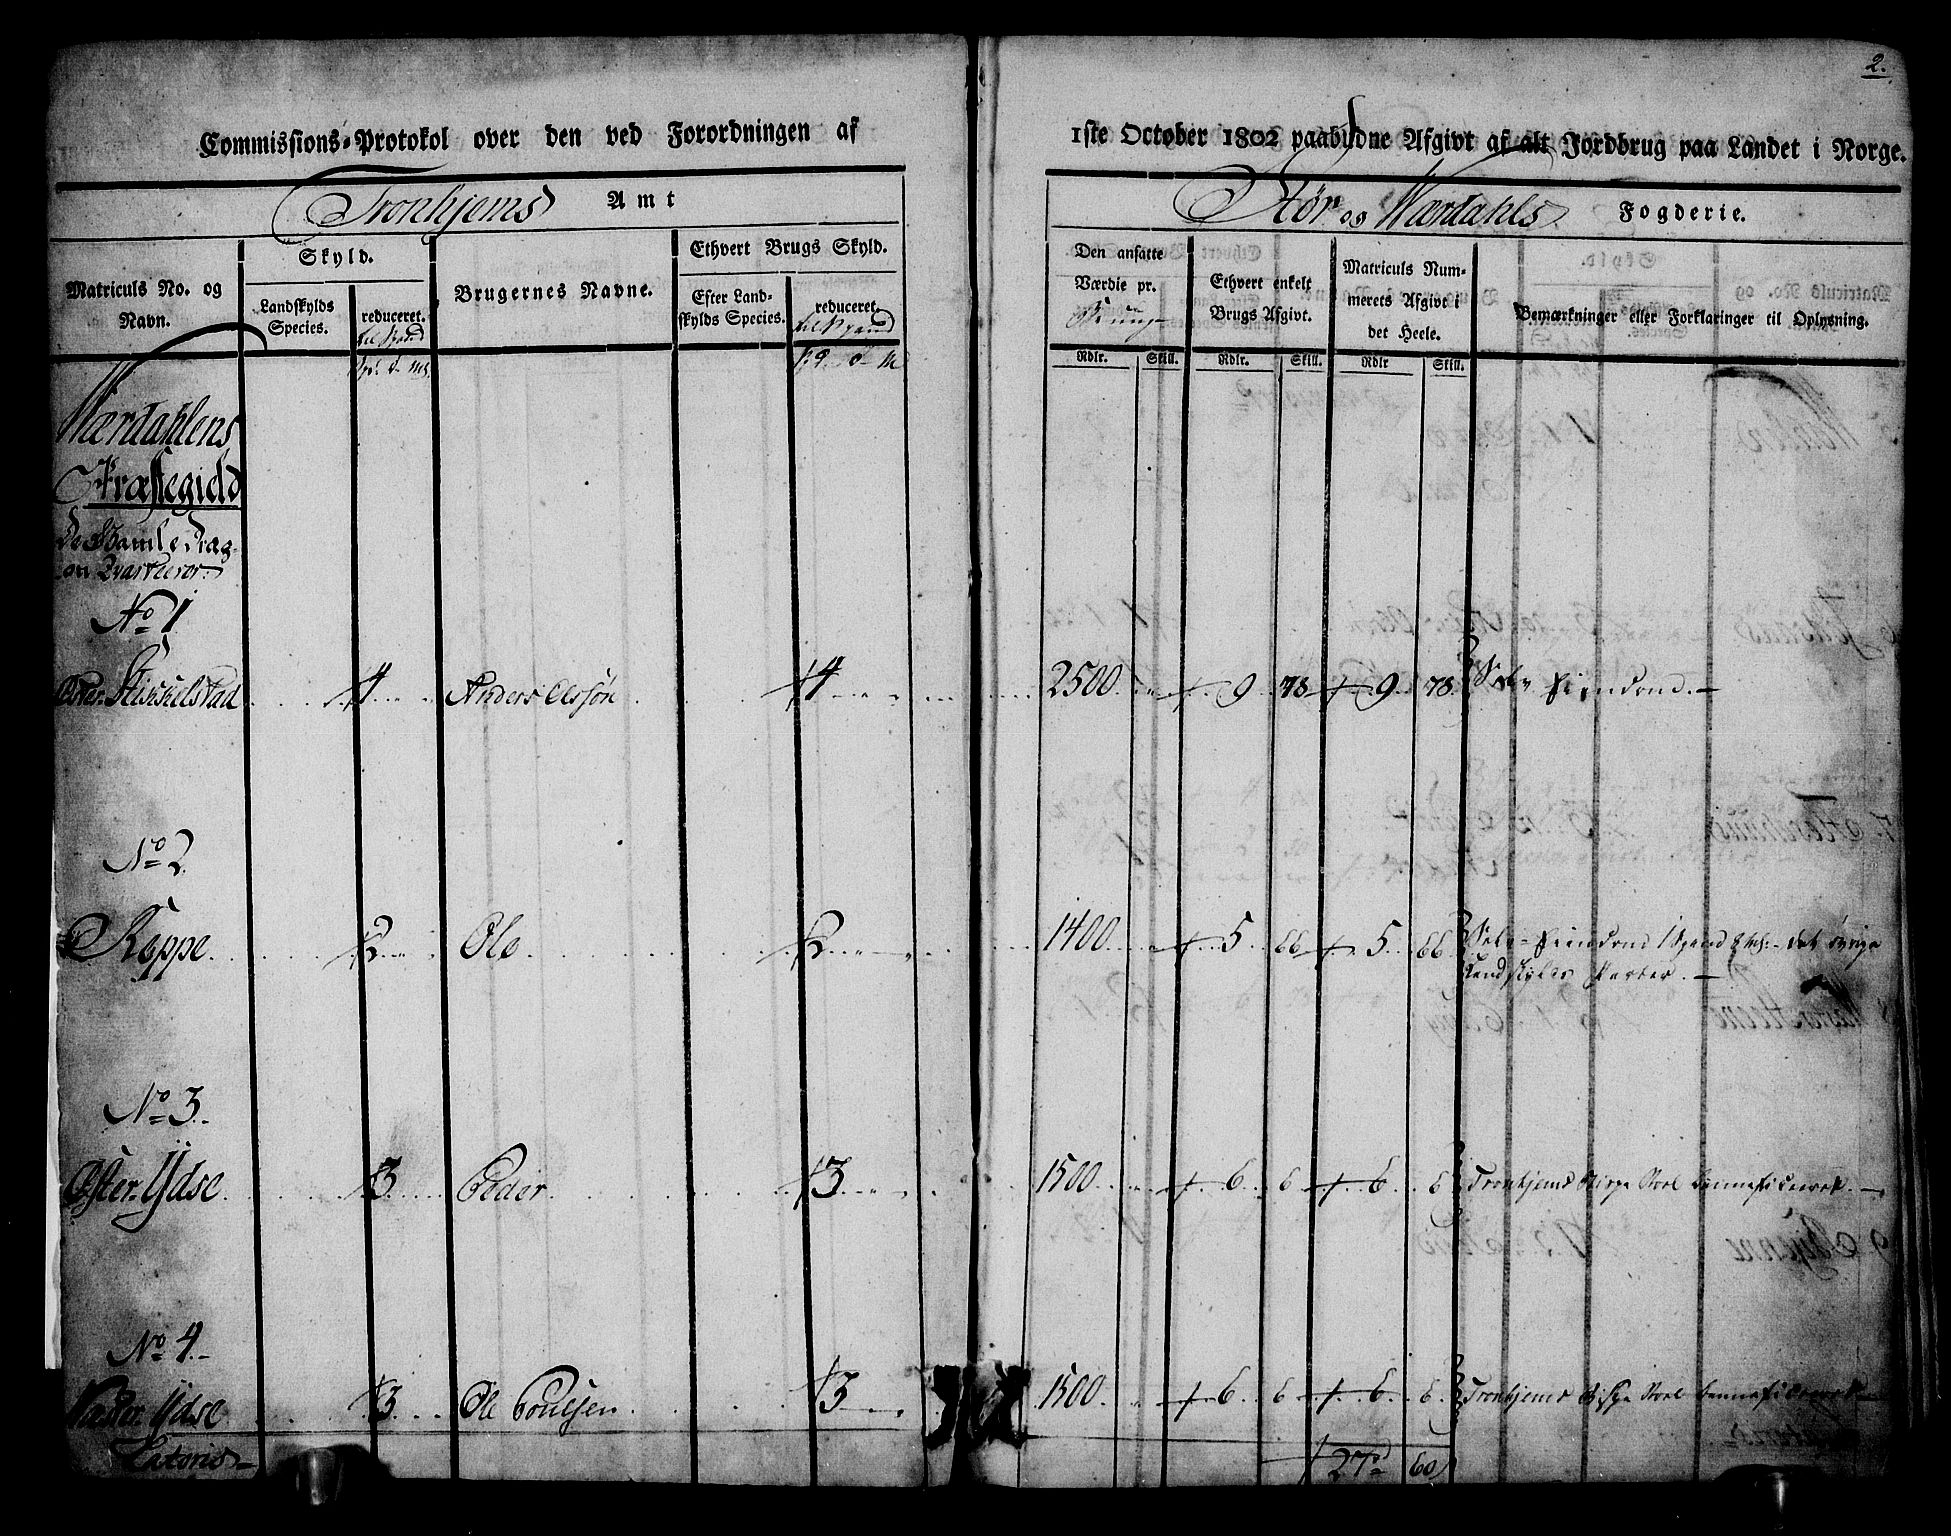 2.
Commissions-Protokol over den ved Forordningen af 1ste October 1802 paabudne Afgivt af alt Jordbrug paa Landet i Norge.
Tronhjems Amt
Stør og Værdahls Fogderie.
Matriculs No. og Navn.
Skyld.
Landskylds Species.
reduceret.
til Spand
Sp. Ø. Mk.
Brugernes Navne.
Ethvert Brugs Skyld.
Efter Landskylds Species.
reduceret.
til Spand
Den ansatte Værdie pr.
Ethvert enkelt Brugs Afgivt.
Matriculs Nummerets Afgivt i det Heele.
Bemærkninger eller Forklaringer til Oplysning.
Rdlr. Skill. Rdlr. Skill. Rdlr Skill.
Værdahlens
Præstegield
De Gamle Drag-
on Qvarteerer
No 1
Øster Stikkelstad 4 Anders Olsøn 4 2500 9 78 9 78 Selv Eiendom.
No 2
Koppe 2 Ole 2 1400 5 66 5 66 Selv Eiendom 1 Spand det øvrige
Landskylds Parter.
No 3.
Øster Ydse 3 Peder 3 1500 6 6 6 6 Tronhjems Bispe Stoel beneficeret.
No 4.
Væster Ydse 3 Ole Poulsen 3 1500 6 6 6 6 Tronhjems Bispe Stoel beneficeret
Lateris
27 60